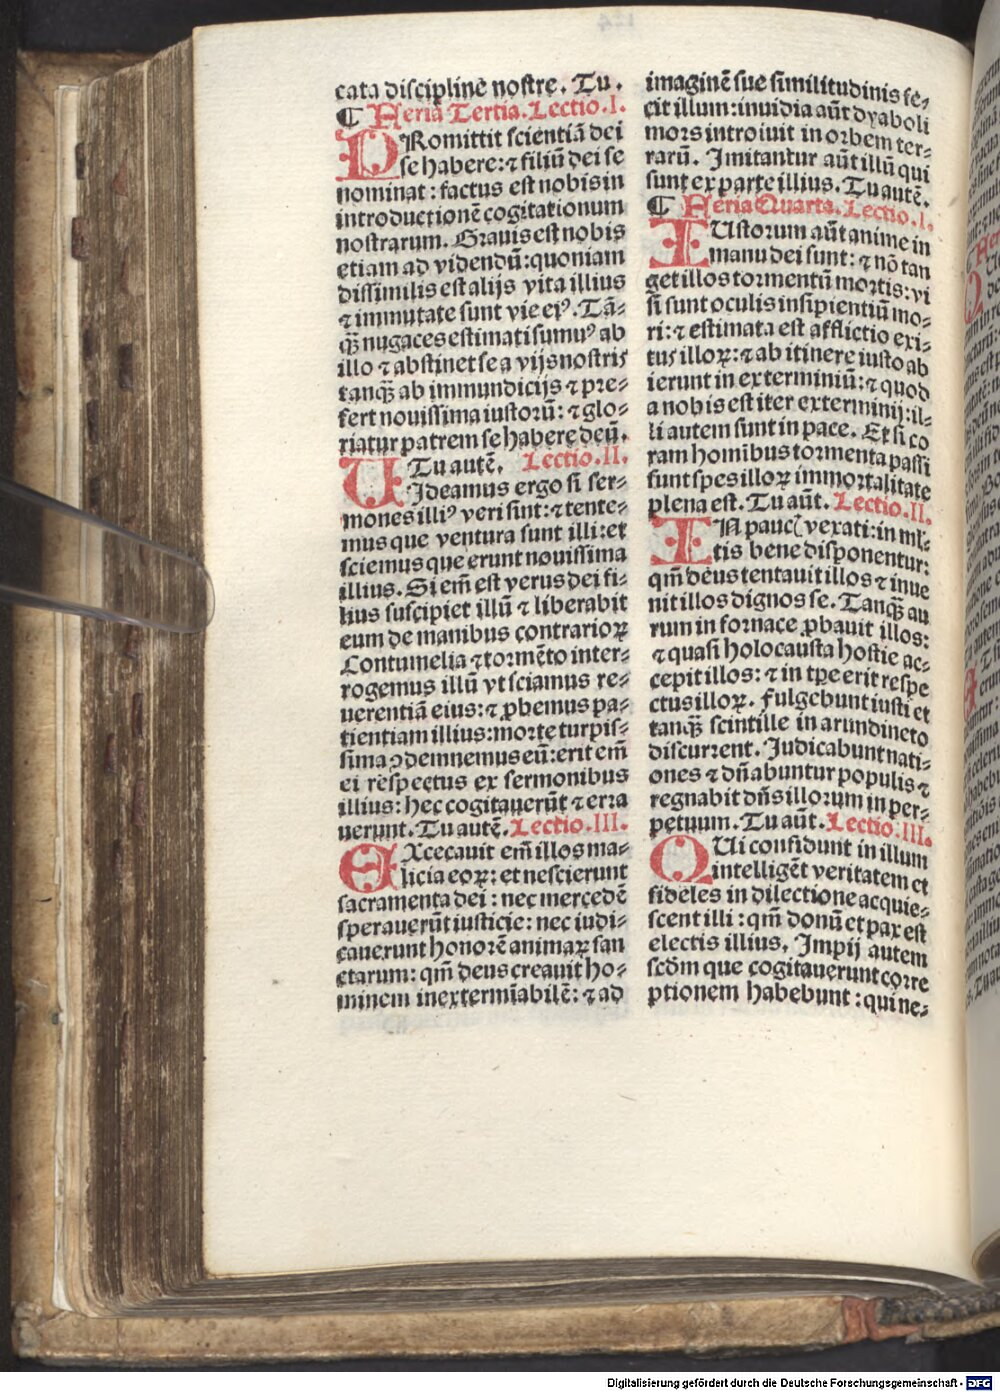 cata discipline nostre. Tu.
¶ Feria Tertia. Lectio. I.
PRomittit scientiā dei
se habere: ⁊ filiū dei se
nominat: factus est nobis in
introductionē cogitationum
nostrarum. Grauis est nobis
etiam ad videndū: quoniam
dissimilis est alijs vita illius
⁊ immutate sunt vie eiꝰ. Tā⸗
qꝫ̄ nugaces estimati sumuꝰ ab
illo ⁊ abstinet se a vijs nostris
tanqꝫ̄ ab immundicijs ⁊ pre⸗
fert nouissima iustorū: ⁊ glo⸗
riatur patrem se habere deū.
Tu autē. Lectio. II.
UIdeamus ergo si ser⸗
mones illiꝰ veri sint: ⁊ tente⸗
mus que ventura sunt illi: et
sciemus que erunt nouissima
illius. Si em̄ est verus dei fi⸗
lius suscipiet illū ⁊ liberabit
eum de manibus contrarioꝝ
Contumelia ⁊ tormēto inter⸗
rogemus illū vt sciamus re⸗
uerentiā eius: ⁊ ꝓbemus pa⸗
tientiam illius: morte turpis⸗
sima ꝯdemnemus eū: erit em̄
ei respectus ex sermonibus
illius: hec cogitauerūt ⁊ erra
uerunt. Tu autē. Lectio. III.
EXcecauit em̄ illos ma⸗
licia eoꝝ: et nescierunt
sacramenta dei: nec mercedē
sperauerūt iusticie: nec iudi⸗
cauerunt honorē animaꝝ san
ctarum: qm̄ deus creauit ho⸗
minem inextermīabilē: ⁊ ad
imaginē sue similitudinis fe⸗
cit illum: inuidia aūt dyaboli
mors introiuit in orbem ter⸗
rarū. Imitantur aūt illū qui
sunt ex parte illius. Tu autē.
¶ Feria Quarta. Lectio. I.
IUstorum aūt anime in
manu dei sunt: ⁊ nō tan
get illos tormentū mortis: vi
si sunt oculis insipientiū mo⸗
ri: ⁊ estimata est afflictio exi⸗
tus illoꝝ: ⁊ ab itinere iusto ab
ierunt in exterminiū: ⁊ quod
a nobis est iter exterminij: il⸗
li autem sunt in pace. Et si co
ram homībus tormenta passi
sunt spes illoꝝ immortalitate
plena est. Tu aūt. Lectio. II.
IN pauc̄ vexati: in ml̄⸗
tis bene disponentur:
qm̄ deus tentauit illos ⁊ inue
nit illos dignos se. Tanqꝫ̄ au
rum in fornace ꝓbauit illos:
⁊ quasi holocausta hostie ac⸗
cepit illos: ⁊ in tp̄e erit respe
ctus illoꝝ. Fulgebunt iusti et
tanqꝫ̄ scintille in arundineto
discurrent. Judicabunt nati⸗
ones ⁊ dn̄abuntur populis ⁊
regnabit dn̄s illorum in per⸗
petuum. Tu aūt. Lectio. III.
QUi confidunt in illum
intelligēt veritatem et
fideles in dilectione acquie⸗
scent illi: qm̄ donū et pax est
electis illius. Impij autem
scd̄m que cogitauerunt corre
ptionem habebunt: qui ne⸗
Digitalisierung gefördert durch die Deutsche Forschungsgemeinschaft - DFG